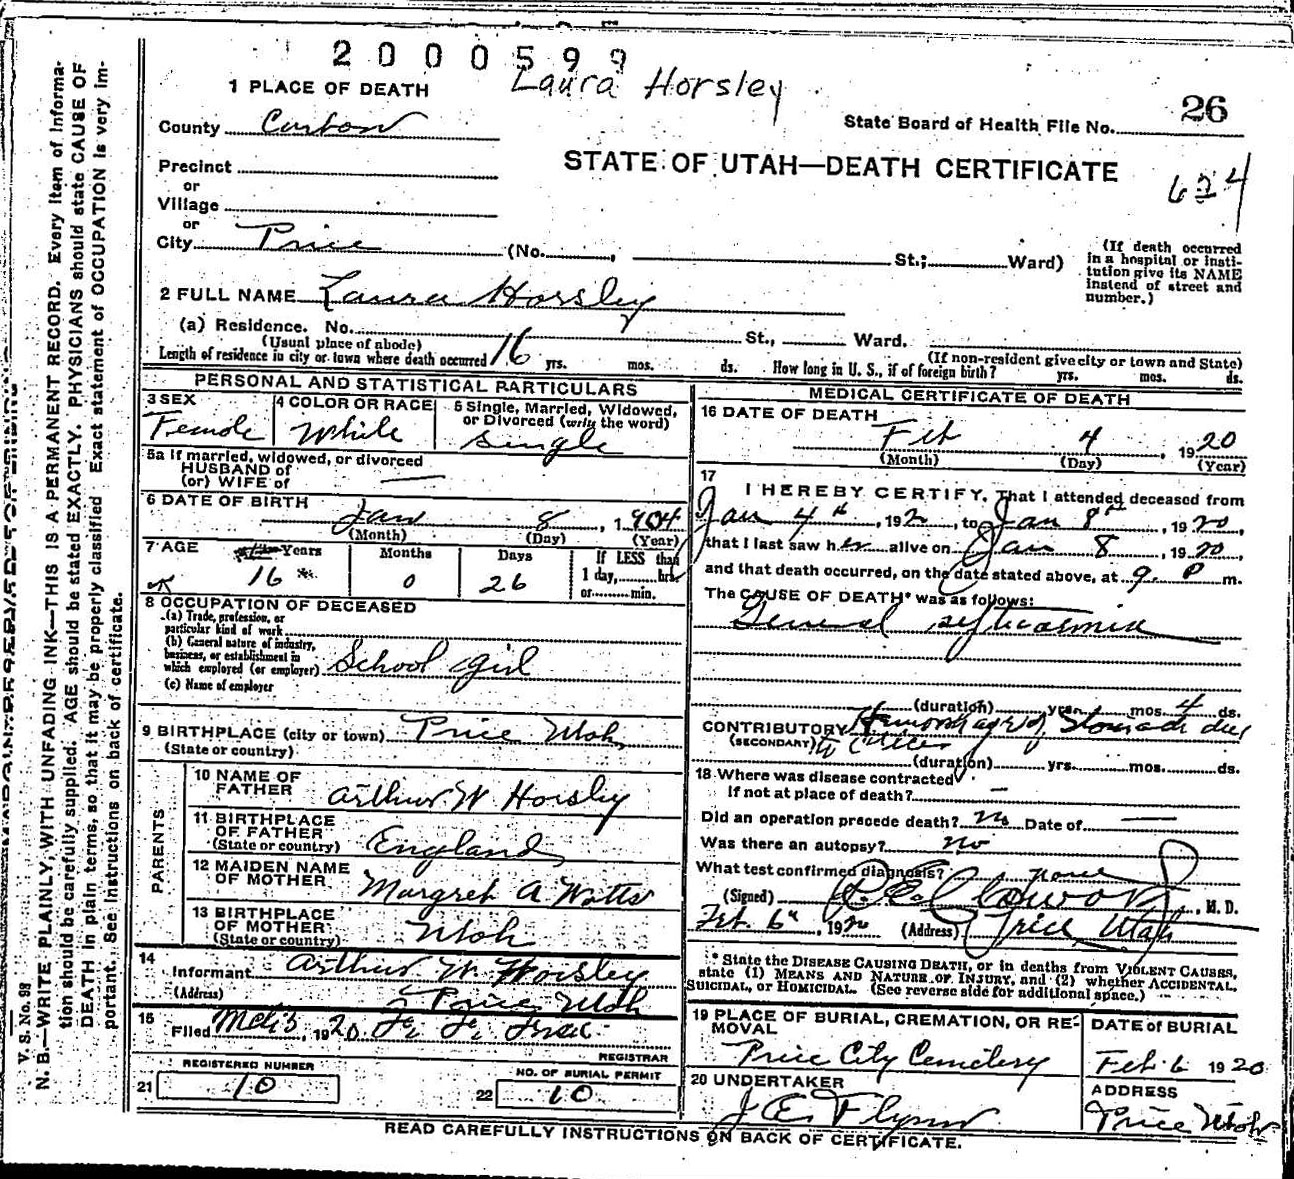 2000599
Laura Horsley
1 PLACE OF DEATH
26
County Carbon
State Board of Health File No.
STATE OF UTAH—DEATH CERTIFICATE
Precinct
or
Village
or
City Price (No. , St.; Ward)
(If death occurred
in a hospital or insti-
tution give its NAME
instead of street and
number.)
2 FULL NAME Laura Horsley
(a) Residence. No. St., Ward.
(Usual place of abode)
(If non-resident give city or town and State)
Length of residence in city or town where death occurred 16 yrs. mos. ds. How long in U. S., if of foreign birth? yrs. mos. ds.
PERSONAL AND STATISTICAL PARTICULARS
3 SEX
Female
4 COLOR OR RACE
White
5 Single, Married, Widowed,
or Divorced (write the word)
Single
5a If married, widowed, or divorced
HUSBAND of
(or) WIFE of —
6 DATE OF BIRTH
Jan 8, 1904
(Month) (Day) (Year)
7 AGE
Years Months Days If LESS than
1 day, hrs.
or min.
16 0 26
8 OCCUPATION OF DECEASED
(a) Trade, profession, or
particular kind of work
(b) General nature of industry,
business, or establishment in
which employed (or employer) School girl
(c) Name of employer
9 BIRTHPLACE (city or town) Price Utah
(State or country)
PARENTS
10 NAME OF
FATHER Arthur W Horsley
11 BIRTHPLACE
OF FATHER
(State or country) England
12 MAIDEN NAME
OF MOTHER Margret A Watts
13 BIRTHPLACE
OF MOTHER
(State or country) Utah
14
Informant Arthur W. Horsley
(Address) Price Utah
15
Filed Mch 3, 1920
REGISTRAR
REGISTERED NUMBER
21 10
NO. OF BURIAL PERMIT
22 10
MEDICAL CERTIFICATE OF DEATH
16 DATE OF DEATH
Feb 4, 1920
(Month) (Day) (Year)
17
I HEREBY CERTIFY, That I attended deceased from
Jan 4th, 1920, to Jan 8th, 1920,
that I last saw her alive on Jan 8, 1920,
and that death occurred, on the date stated above, at 9. P m.
The CAUSE OF DEATH* was as follows:
General septicaemia
(duration) yrs. mos. 4 ds.
CONTRIBUTORY Hemorrhage of Stomach due
(SECONDARY) to
(duration) yrs. mos. ds.
18 Where was disease contracted
if not at place of death? —
Did an operation precede death? No Date of —
Was there an autopsy? no
What test confirmed diagnosis? none
(Signed) , M. D.
Feb. 6th, 1920 (Address) Price, Utah
* State the DISEASE CAUSING DEATH, or in deaths from VIOLENT CAUSES,
state (1) MEANS AND NATURE OF INJURY, and (2) whether ACCIDENTAL,
SUICIDAL, or HOMICIDAL. (See reverse side for additional space.)
19 PLACE OF BURIAL, CREMATION, OR RE-
MOVAL
Price City Cemetery
DATE of BURIAL
Feb 6 1920
20 UNDERTAKER
J E Flynn
ADDRESS
Price Utah
READ CAREFULLY INSTRUCTIONS ON BACK OF CERTIFICATE.
V. S. No. 98
N. B.—WRITE PLAINLY, WITH UNFADING INK—THIS IS A PERMANENT RECORD. Every item of informa-
tion should be carefully supplied. AGE should be stated EXACTLY. PHYSICIANS should state CAUSE OF
DEATH in plain terms, so that it may be properly classified. Exact statement of OCCUPATION is very im-
portant. See instructions on back of certificate.